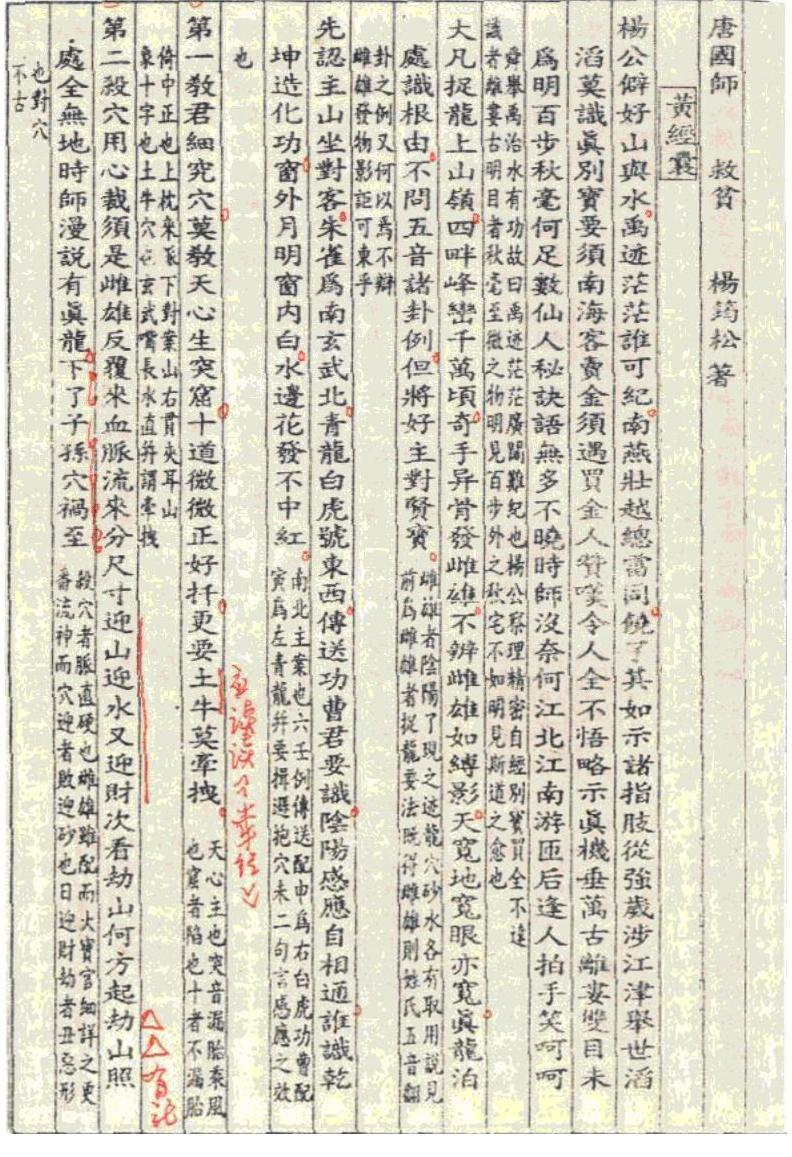 唐國師 救貧 楊筠松 著
黃經囊
楊公僻好山與水禹迹茫茫誰可紀南燕壯越總當同饒了其如示諸指肢從強歲涉江津舉世滔
滔莫識眞別寶要須南海客賣金須遇買金人贊嘆令人全不悟略示眞機垂萬古離婁雙目未
爲明百步秋毫何足數仙人秘訣語無多不曉時師沒奈何江北江南游匝后逢人拍手笑呵呵
舜舉禹治水有功故曰禹迹茫茫廣闊難紀也楊公察理精密自經別寶買全不遠
離婁古明目者秋毫至微之物明見百步外之秋宅不如明見斯道之愈也
大凡捉龍上山嶺四畔峰巒千萬頃奇手异骨發雌雄不辨雌雄如縛影天寬地寬眼亦寬眞龍泊
處識根由不問五音諸卦例但將好主對賢賓
雌雄者陰陽了現之迹龍穴砂水各有取用說見
前爲雌雄者捉龍要法既得雌雄則姓氏五音翻
卦之例又何以爲不辯
雌雄發物影詎可東乎
先認主山坐對客朱雀爲南玄武北青龍白虎號東西傳送功曹君要識陰陽感應自相通誰識乾
坤造化功窗外月明窗内白水邊花發不中紅
南北主案也六壬例傳送配申爲右白虎功曹配
寅爲左青龍幷要揖遜抱穴未二句言感應之效
也
第一教君細究穴莫教天心生突窟十道微微正好扦更要土牛莫牽拽
天心主也突音漏胎乘風
也窟者陷也十者不漏胎
倚中正也上枕來脈下對案山右貫夾耳山
象十字也土牛穴也玄武嘴長水直幷謂牽拽
第二殺穴用心裁須是雌雄反覆來血脈流來分尺寸迎山迎水又迎財次看劫山何方起劫山照
處全無地時師漫說有眞龍下了子孫穴禍至
殺穴者脈直硬也雌雄雖配而大寶官細詳之更
番流神而穴迎者敗迎砂也日迎財劫者丑惡形
也對穴
不古
有記